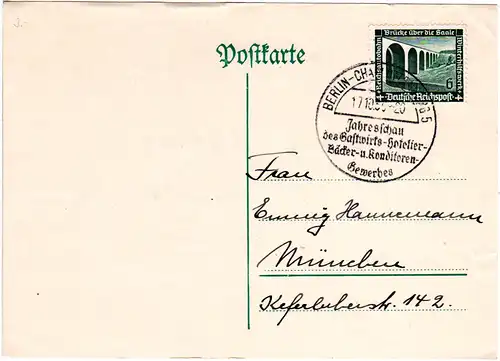 3.-
Postkarte
Brücke über die Saale
Reichsautobahn
Winterhilfswerk
6
Deutsche Reichspost
BERLIN-CHA 5
17.10. -20
Jahresschau
des Gastwirts-Hotelier-
Bäcker-u. Konditoren-
Gewerbes
Frau
Emmy Hannemann
München
Keferloherstr. 142.